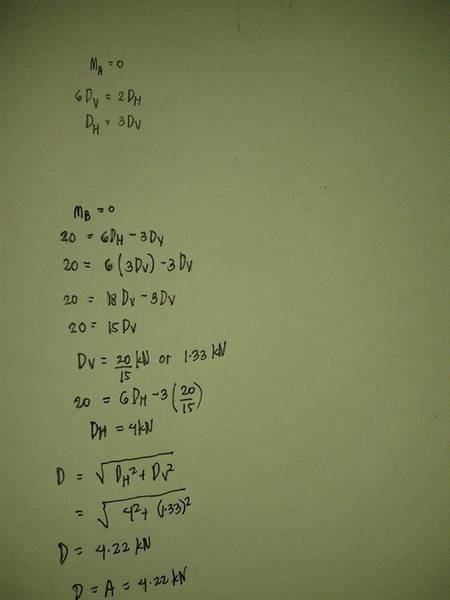 M_A = 0
6D_V = 2D_H
D_H = 3D_V
M_B = 0
20 = 6D_H - 3D_V
20 = 6(3D_V) - 3D_V
20 = 18D_V - 3D_V
20 = 15D_V
D_V = 20/15 kN or 1.33 kN
20 = 6D_H - 3(20/15)
D_H = 4kN
D = √(D_H² + D_V²)
= √(4² + (1.33)²)
D = 4.22 kN
D = A = 4.22 kN